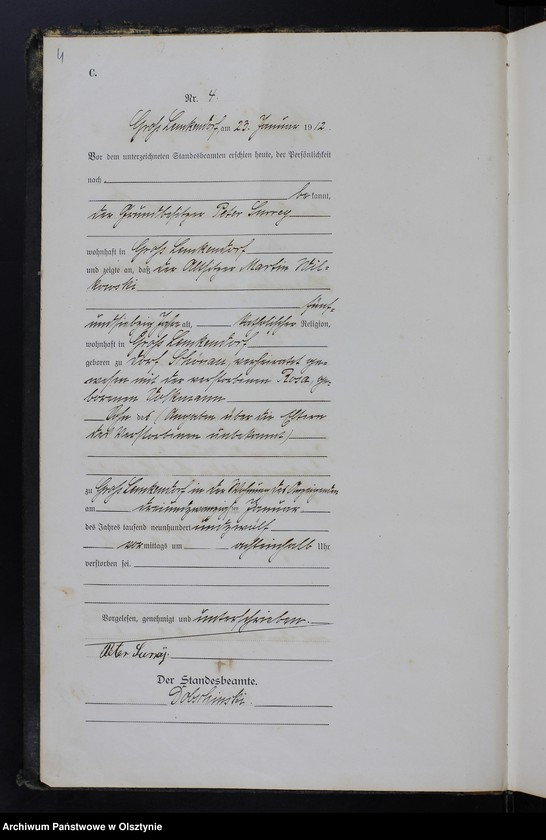 4
C.
Nr. 4
Groß Lemkendorf, am 23. Januar 1912.
Vor dem unterzeichneten Standesbeamten erschien heute, der Persönlichkeit
nach
bekannt,
der Grundbesitzer Peter Surrey
wohnhaft in Groß Lemkendorf
und zeigte an, daß der Altsitzer Martin Wil-
kowski
fünf-
undsiebzig Jahre alt, katholischer Religion,
wohnhaft in Groß Lemkendorf
geboren zu Dorf Schönau, verheiratet ge-
wesen mit der verstorbenen Rosa, ge-
borenen Volkmann
Sohn des (Angaben über die Eltern
des Verstorbenen unbekannt)
zu Groß Lemkendorf in der Wohnung des Anzeigenden
am dreiundzwanzigsten Januar
des Jahres tausend neunhundert und zwölf
vormittags um achteinhalb Uhr
verstorben sei.
Vorgelesen, genehmigt und unterschrieben.
Peter
Der Standesbeamte.
Dobschinski.
Archiwum Państwowe w Olsztynie